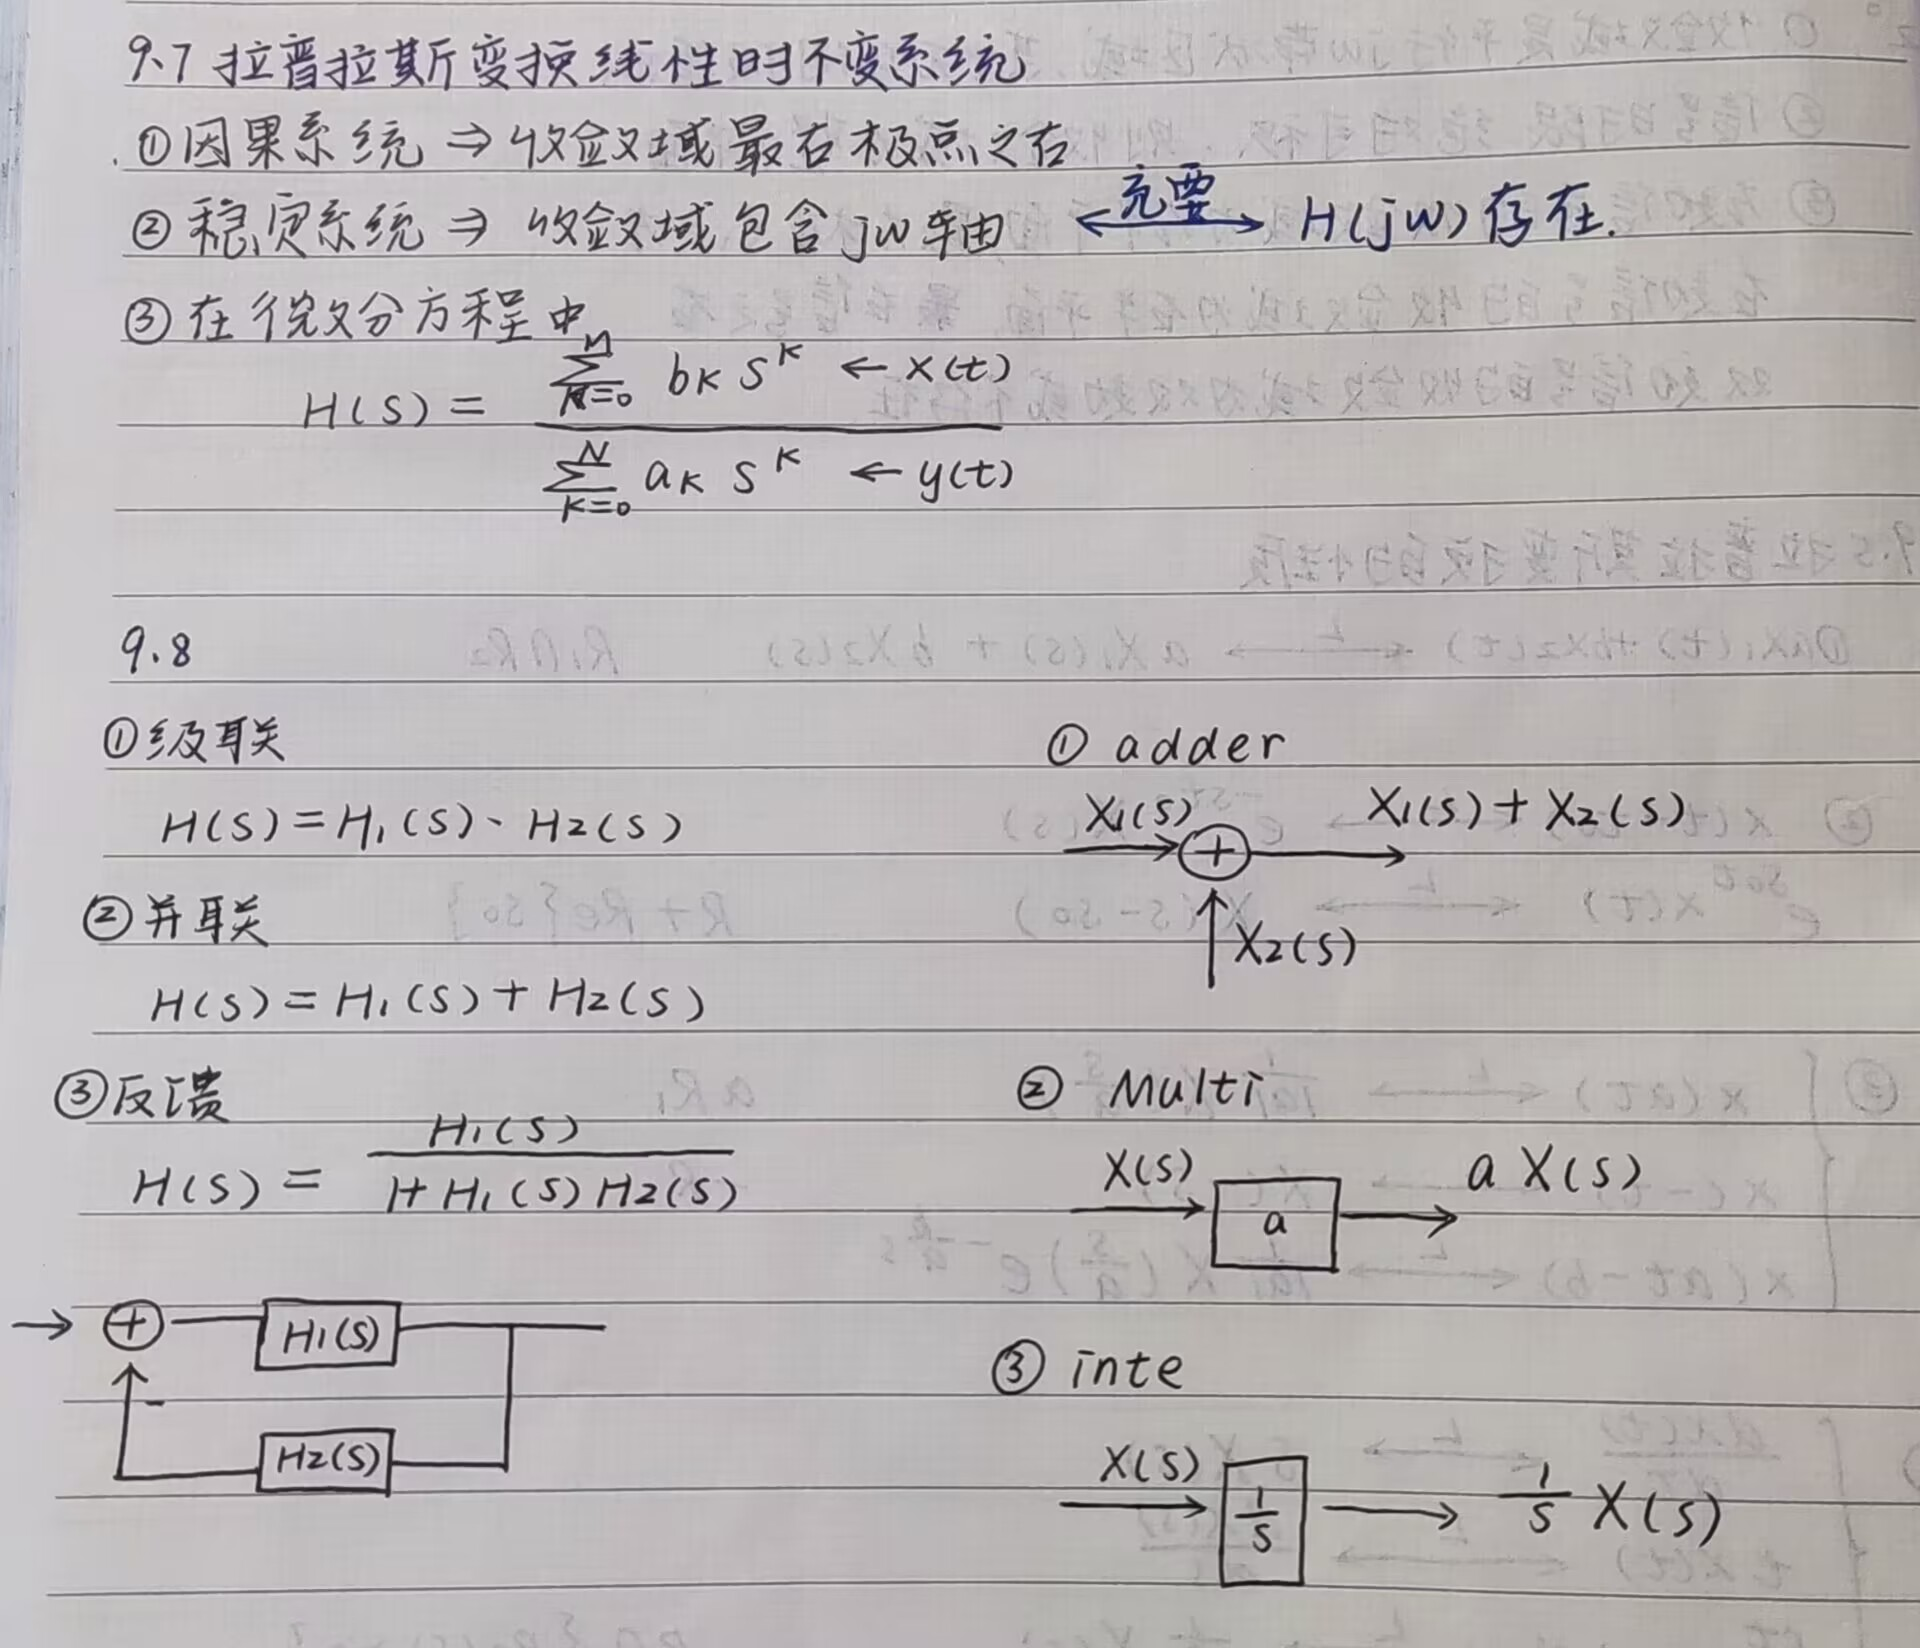 9.7 拉普拉斯变换线性时不变系统
①因果系统 ⇒ 收敛域最右极点之右
②稳定系统 ⇒ 收敛域包含jw轴 ←充要→ H(jw)存在.
③在微分方程中
H(s) = \frac{\sum_{k=0}^{M} b_k s^k ← x(t)}{\sum_{k=0}^{N} a_k s^k ← y(t)}
9.8
①级联
H(s) = H1(s)·H2(s)
②并联
H(s) = H1(s) + H2(s)
③反馈
H(s) = \frac{H1(s)}{1+H1(s)H2(s)}
→ + H1(s)
-
H2(s)
① adder
X1(s) + X1(s)+X2(s)
X2(s)
② Multi
X(s) a a X(s)
③ inte
X(s) \frac{1}{s} → \frac{1}{s} X(s)